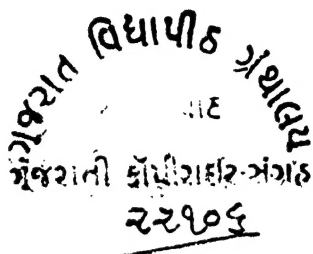 ગુજરાત વિદ્યાપીઠ ગ્રંથાલય
ગુજરાતી કૉપીરાઈટ-સંગ્રહ
૨૨૧૦૬